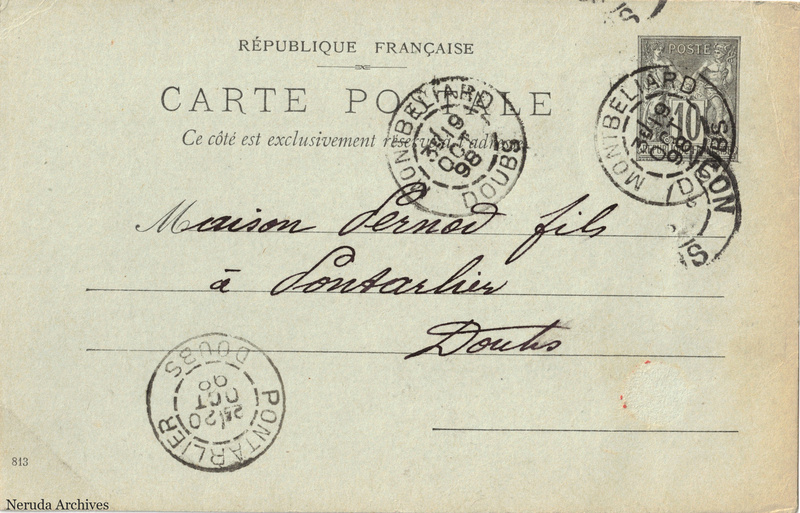 RÉPUBLIQUE FRANÇAISE
CARTE POSTALE
Ce côté est exclusivement réservé à l'adresse
POSTE
10
MONTBELIARD
19
OCT
98
DOUBS
MONTBELIARD
19
OCT
98
(DOUBS
Maison Pernod fils
à Pontarlier
Doubs
PONTARLIER
20
OCT
98
DOUBS
813
Neruda Archives